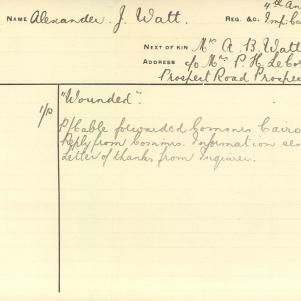 NAME Alexander J. Watt. REG. &C. 4th An
Imp. Ca
NEXT OF KIN Mr A. B. Watt
ADDRESS c/o Mrs P. H. LeCo
Prospect Road Prospec
1/P "Wounded".
P/Cable forwarded Commrs Cairo
Reply from Commrs. Information sen
Letter of thanks from Inquirer.